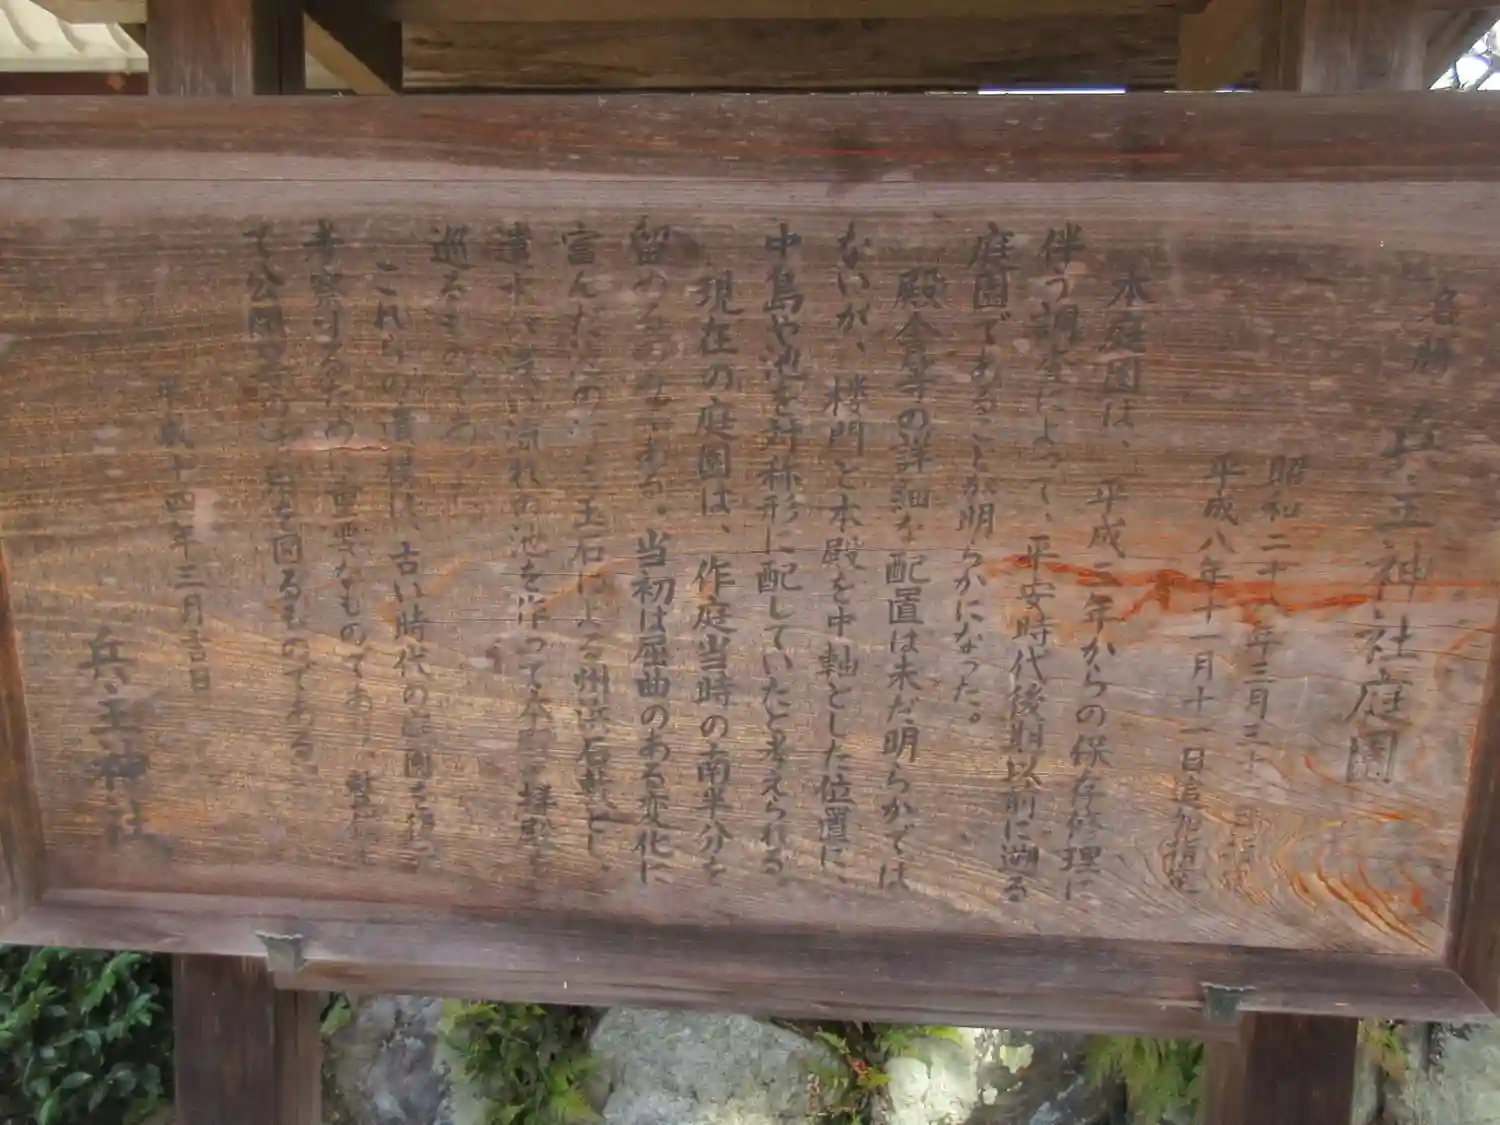 名勝 兵主神社庭園
昭和二十八年三月三十一日指定
平成八年十一月十一日追加指定
本庭園は、平成三年からの保存修理に
伴う調査によって、平安時代後期以前に遡る
庭園であることが明らかになった。
殿舎等の詳細な配置は未だ明らかでは
ないが、楼門と本殿を中軸とした位置に、
中島や池を対称形に配していたと考えられる。
現在の庭園は、作庭当時の南半分を
留めるのみである。当初は屈曲のある変化に
富んだ池の汀を玉石による州浜石敷とし、
遣水は浅い流れの池を作って本殿と拝殿を
巡るものであった。
これらの遺構は、古い時代の庭園を
考察するために重要なものであり、整備
て公開等の活用を図るものである。
平成十四年三月吉日
兵主神社